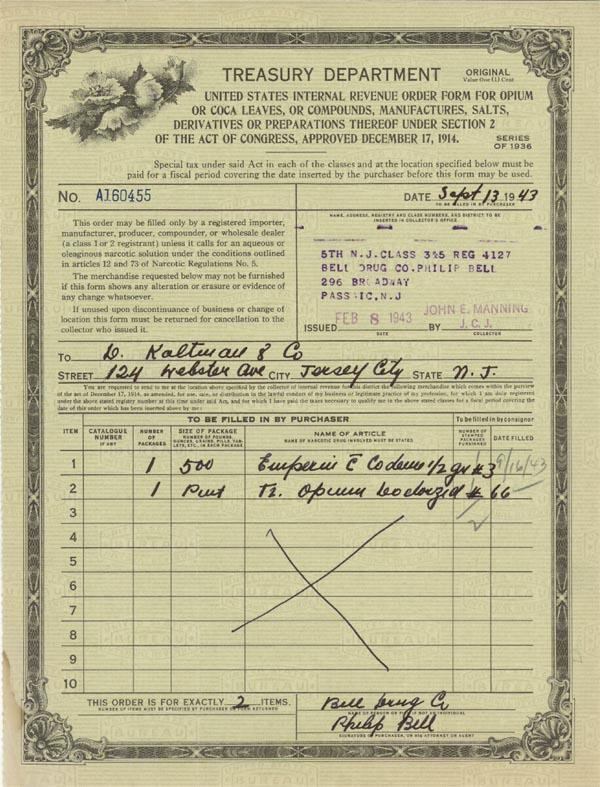 TREASURY DEPARTMENT
ORIGINAL
Value One (1) Cent
UNITED STATES INTERNAL REVENUE ORDER FORM FOR OPIUM
OR COCA LEAVES, OR COMPOUNDS, MANUFACTURES, SALTS,
DERIVATIVES OR PREPARATIONS THEREOF UNDER SECTION 2
OF THE ACT OF CONGRESS, APPROVED DECEMBER 17, 1914.
SERIES
OF 1936
Special tax under said Act in each of the classes and at the location specified below must be
paid for a fiscal period covering the date inserted by the purchaser before this form may be used.
No. A160455
DATE Sept 13 1943
TO BE FILLED IN BY PURCHASER
This order may be filled only by a registered importer,
manufacturer, producer, compounder, or wholesale dealer
(a class 1 or 2 registrant) unless it calls for an aqueous or
oleaginous narcotic solution under the conditions outlined
in articles 12 and 73 of Narcotic Regulations No. 5.
The merchandise requested below may not be furnished
if this form shows any alteration or erasure or evidence of
any change whatsoever.
If unused upon discontinuance of business or change of
location this form must be returned for cancellation to the
collector who issued it.
NAME, ADDRESS, REGISTRY AND CLASS NUMBERS, AND DISTRICT TO BE
INSERTED IN COLLECTOR'S OFFICE.
5TH N.J. CLASS 3&5 REG 4127
BELL DRUG CO. PHILIP BELL
296 BROADWAY
PASSAIC, N.J
ISSUED FEB 8 1943 BY JOHN E. MANNING
J.C.J.
DATE COLLECTOR
To D. Kaltman & Co
STREET 124 Webster Ave CITY Jersey City STATE N. J.
You are requested to send to me at the location above specified by the collector of internal revenue for this district the following merchandise which comes within the purview
of the act of December 17, 1914, as amended, for use, sale, or distribution in the lawful conduct of my business or legitimate practice of my profession, for which I am duly registered
under the above stated registry number at this time under said Act, and for which I have paid the taxes necessary to qualify me in the above stated classes for a fiscal period covering the
date of this order which has been inserted above by me:
TO BE FILLED IN BY PURCHASER
To be filled in by consignor
ITEM
CATALOGUE NUMBER IF ANY
NUMBER OF PACKAGES
SIZE OF PACKAGE
NUMBER OF POUNDS, OUNCES, GRAINS, PILLS, TABLETS, ETC., IN EACH PACKAGE
NAME OF ARTICLE
NAME OF NARCOTIC DRUG INVOLVED MUST BE STATED
NUMBER OF STAMPED PACKAGES FURNISHED
DATE FILLED
1 1 500 Emperin c̄ Codeine 1/2 gr #3 1 9/16/43
2 1 Pint Tr. Opium #66
3
4
5
6
7
8
9
10
THIS ORDER IS FOR EXACTLY 2 ITEMS.
NUMBER OF ITEMS MUST BE SPECIFIED BY PURCHASER OR FORM RETURNED
Bell Drug Co
NAME OF PERSON OR FIRM IF NOT AN INDIVIDUAL
Philip Bell
SIGNATURE OF PURCHASER, OR HIS ATTORNEY OR AGENT